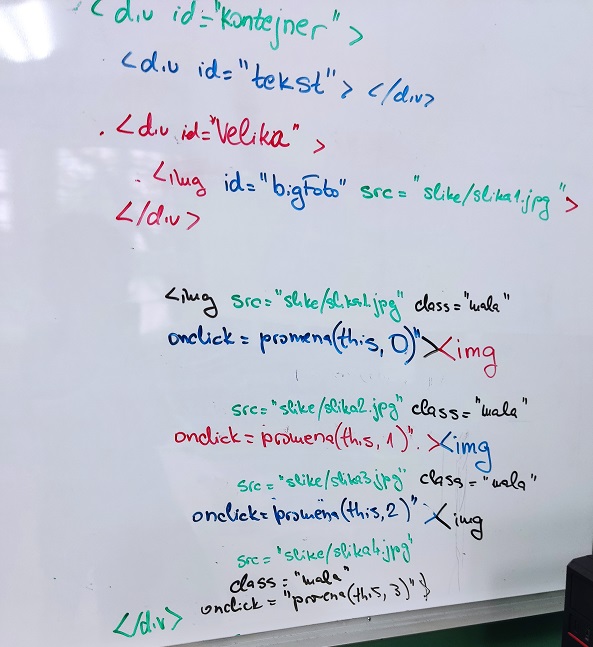 <div id="kontejner">
<div id="tekst"> </div>
<div id="Velika">
<img id="bigFoto" src="slike/slika1.jpg">
</div>
<img src="slike/slika1.jpg" class="mala"
onclick=promena(this,0)"><img
src="slike/slika2.jpg" class="mala"
onclick=promena(this,1)"><img
src="slike/slika3.jpg" class="mala"
onclick=promena(this,2)"><img
src="slike/slika4.jpg"
class="mala"
onclick="promena(this,3)">
</div>